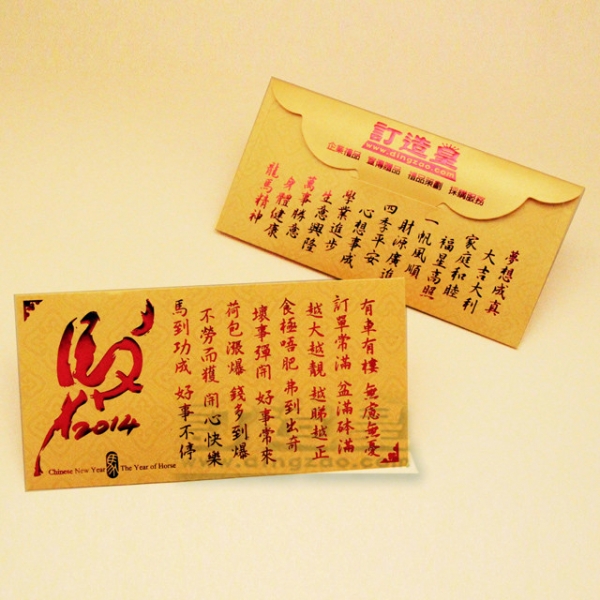 訂造皇
www.dingzoo.com
企業禮品 宣傳贈品 禮品策劃 採購服務
夢想成真
大吉大利
家庭和睦
福星高照
一帆風順
財源廣進
四季平安
心想事成
學業進步
生意興隆
萬事勝意
身體健康
龍馬精神
有車有樓 無慮無憂
訂單常滿 盆滿砵滿
越大越靚 越睇越正
食極唔肥 弗到出奇
壞事彈開 好事常來
荷包漲爆 錢多到爆
不勞而獲 開心快樂
馬到功成 好事不停
2014
Chinese New Year 馬 The Year of Horse
www.dingzoo.com